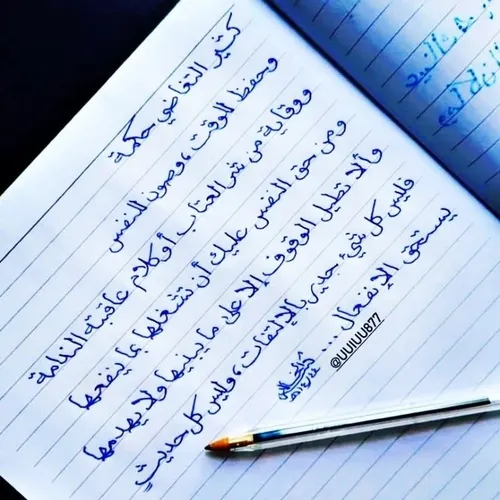 كثير التغاضي حكمة
وحفظ للوقت، وصون للنفس
ووقاية من شر العتاب أو كلام عاقبته الندامة
ومن حق النفس عليك أن تشغلها بما ينفعها
وألا تطيل الوقوف إلا على ما يبنيها ولا يهدمها
فليس كل شيء جدير بالإلتفات، وليس كل حديث
يستحق الإنفعال ...
@UUIUU877